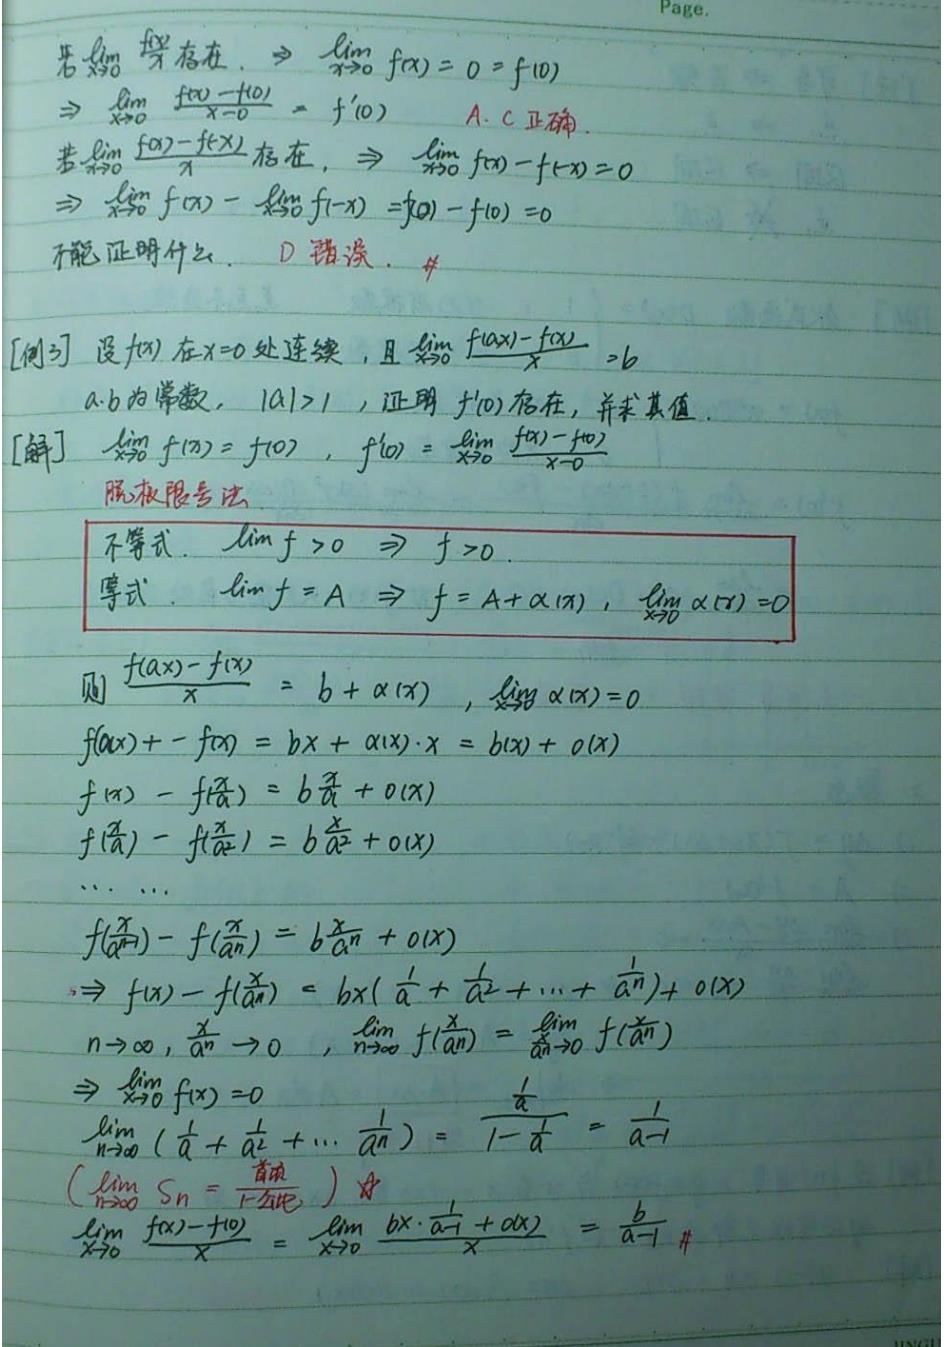 Page.
若 lim_{x→0} f(x)/x 存在. ⇒ lim_{x→0} f(x) = 0 = f(0)
⇒ lim_{x→0} (f(x)-f(0))/(x-0) = f'(0) A.C 正确.
若 lim_{x→0} (f(x)-f(-x))/x 存在, ⇒ lim_{x→0} f(x)-f(-x)=0
⇒ lim_{x→0} f(x) - lim_{x→0} f(-x) = f(0) - f(0) = 0
不能证明什么. D 错误. #
[例3] 设 f(x) 在 x=0 处连续, 且 lim_{x→0} (f(ax)-f(x))/x = b
a.b 为常数, |a|>1, 证明 f'(0) 存在, 并求其值.
[解] lim_{x→0} f(x) = f(0), f'(0) = lim_{x→0} (f(x)-f(0))/(x-0)
脱极限号法
不等式. lim f >0 ⇒ f >0.
等式. lim f = A ⇒ f = A + α(x), lim_{x→0} α(x) = 0
则 (f(ax)-f(x))/x = b + α(x), lim_{x→0} α(x) = 0
f(ax)+ - f(x) = bx + α(x)·x = b(x) + o(x)
f(x) - f(x/a) = b x/a + o(x)
f(x/a) - f(x/a²) = b x/a² + o(x)
... ...
f(x/a^{n-1}) - f(x/a^n) = b x/a^n + o(x)
⇒ f(x) - f(x/a^n) = bx(1/a + 1/a² + ... + 1/a^n) + o(x)
n→∞, x/a^n → 0, lim_{n→∞} f(x/a^n) = lim_{x/a^n→0} f(x/a^n)
⇒ lim_{x→0} f(x) = 0
lim_{n→∞} (1/a + 1/a² + ... 1/a^n) = (1/a)/(1 - 1/a) = 1/(a-1)
(lim_{n→∞} Sn = 首项/(1-公比)) ☆
lim_{x→0} (f(x)-f(0))/x = lim_{x→0} (bx · 1/(a-1) + o(x))/x = b/(a-1) #